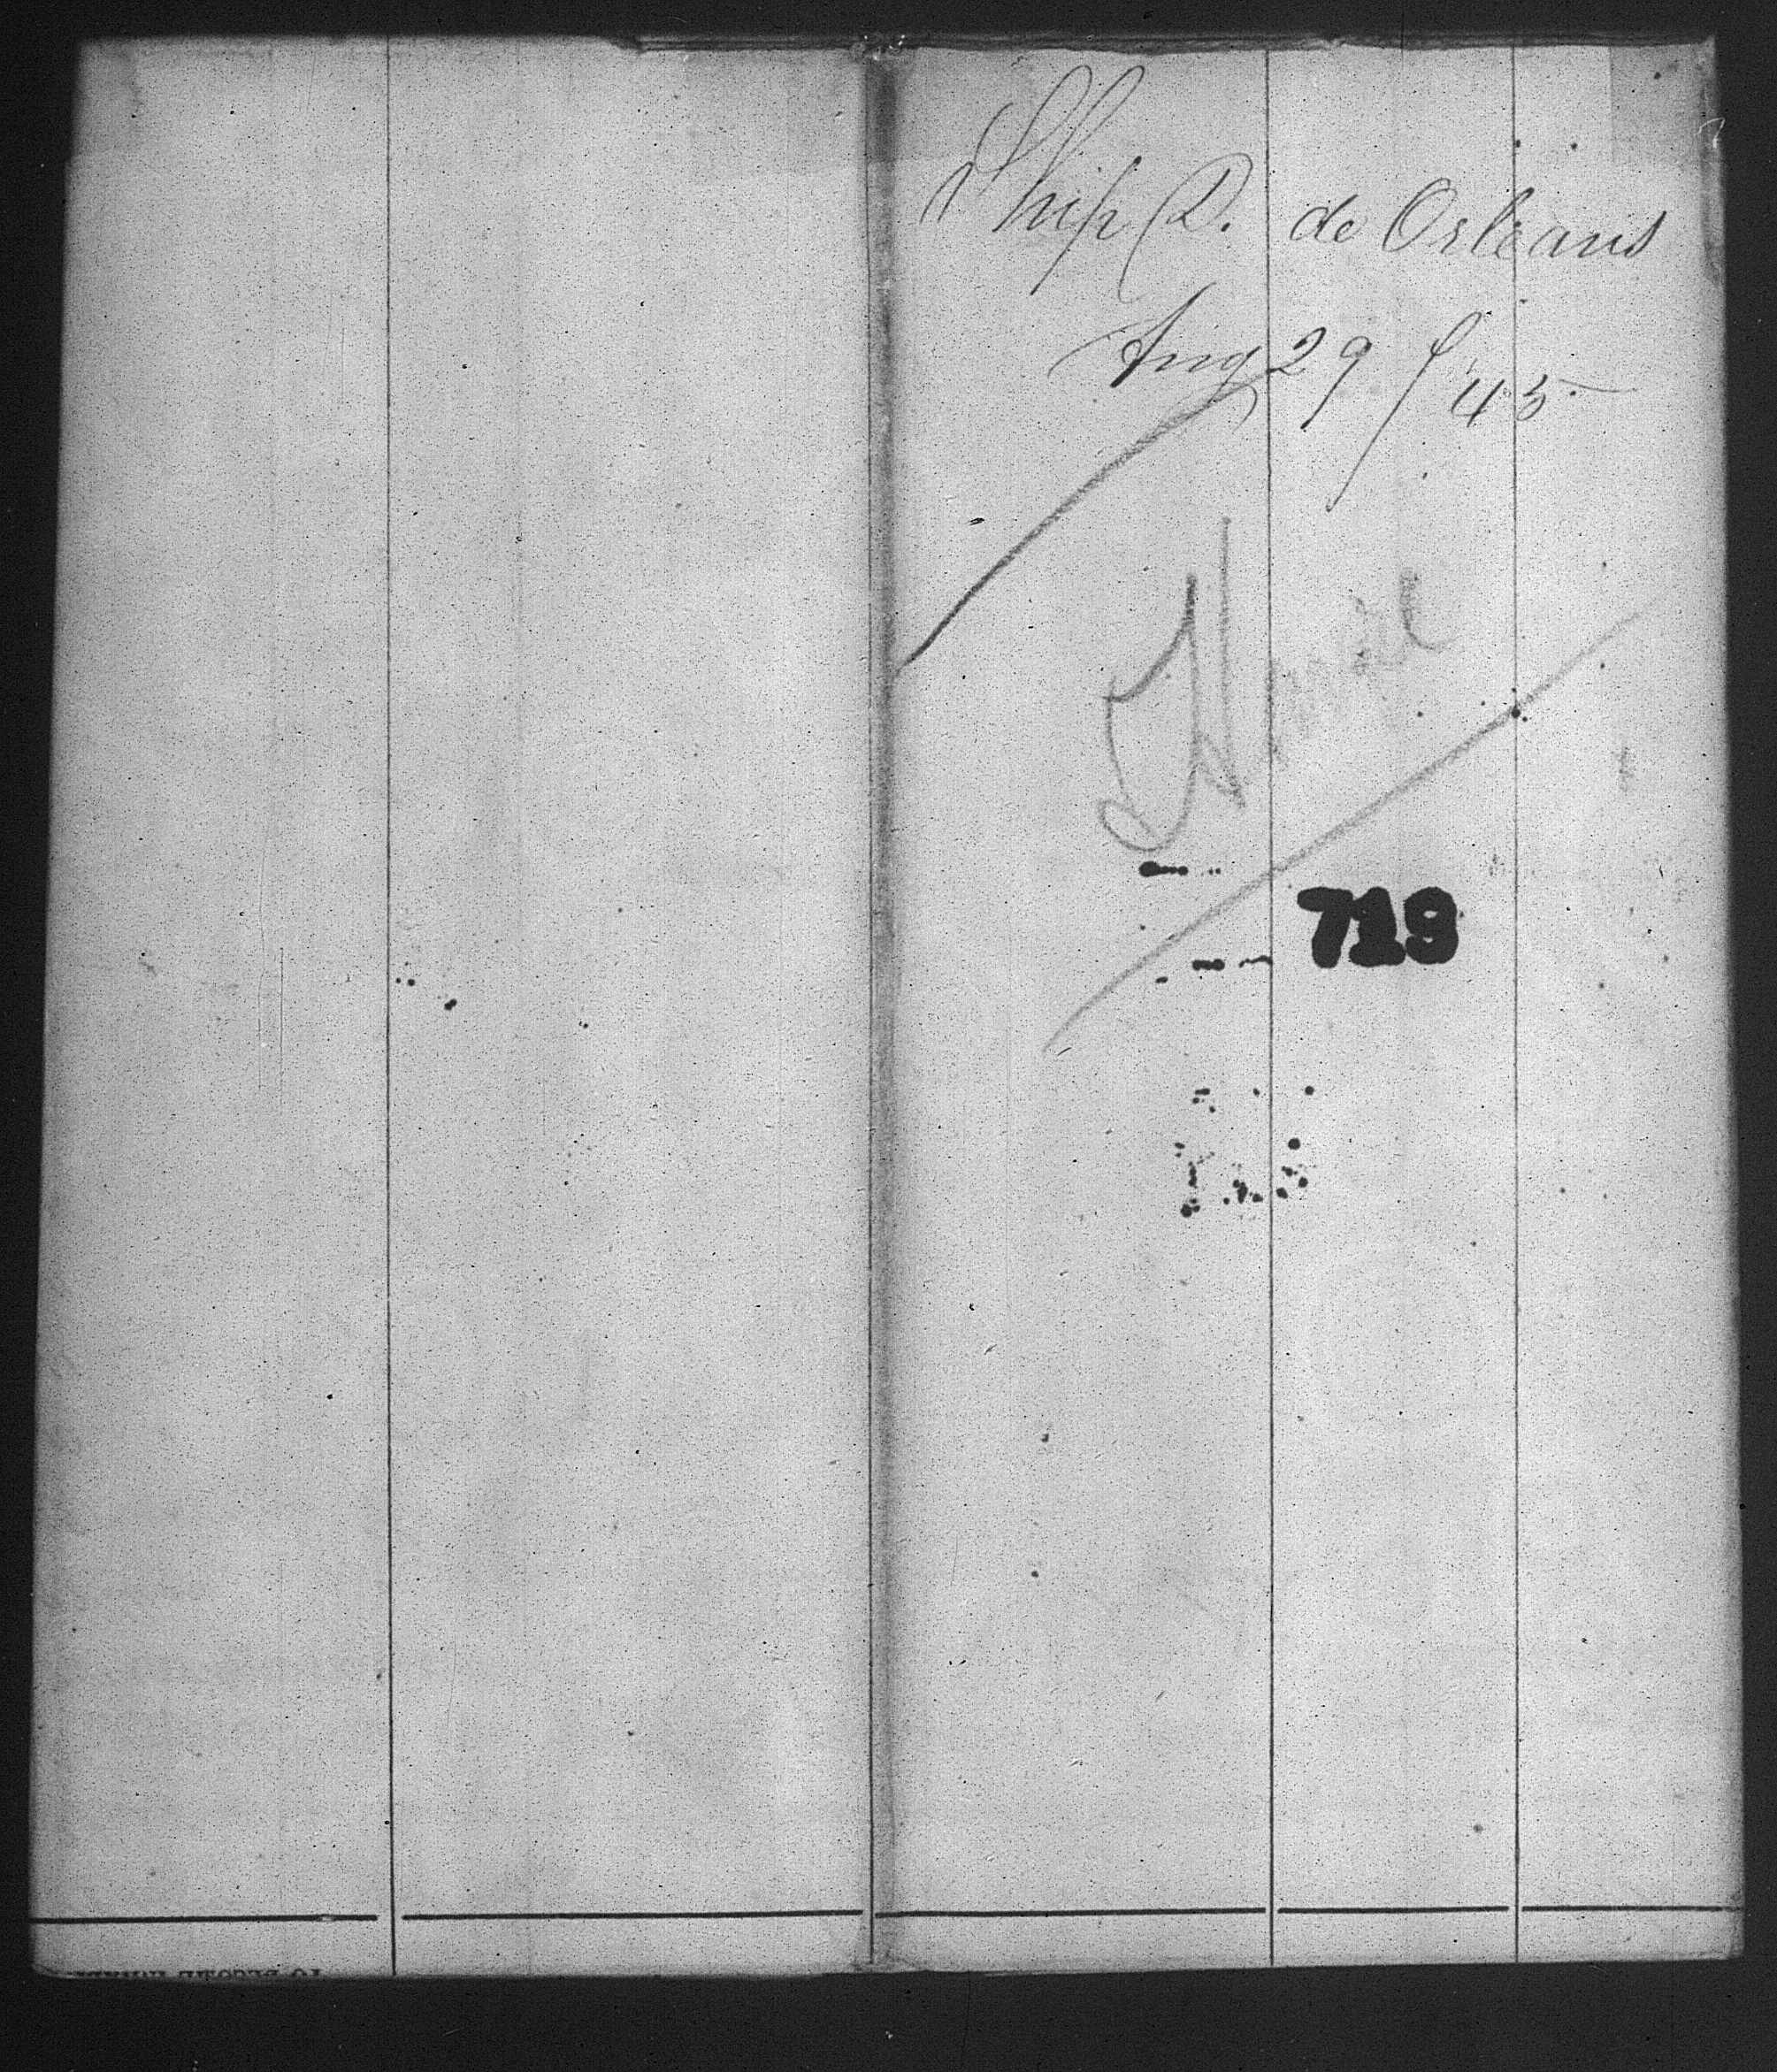 Ship D. de Orleans
Aug 29 / 45
Havre
719